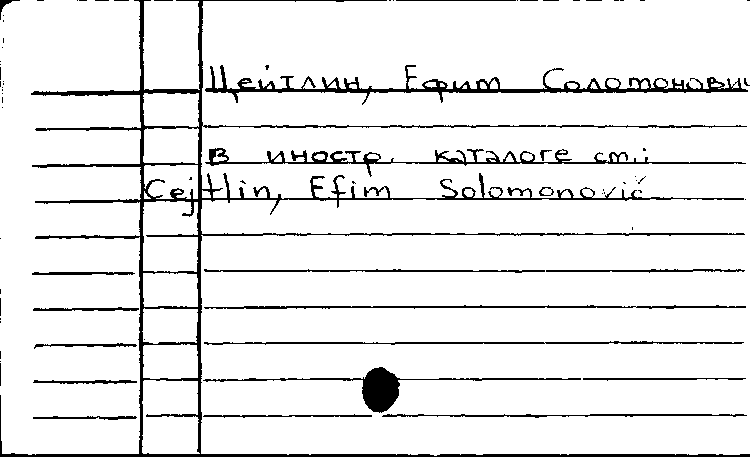 Цейтлин, Ефим Соломонович
В иностр. каталоге см.:
Cejtlin, Efim Solomonovič